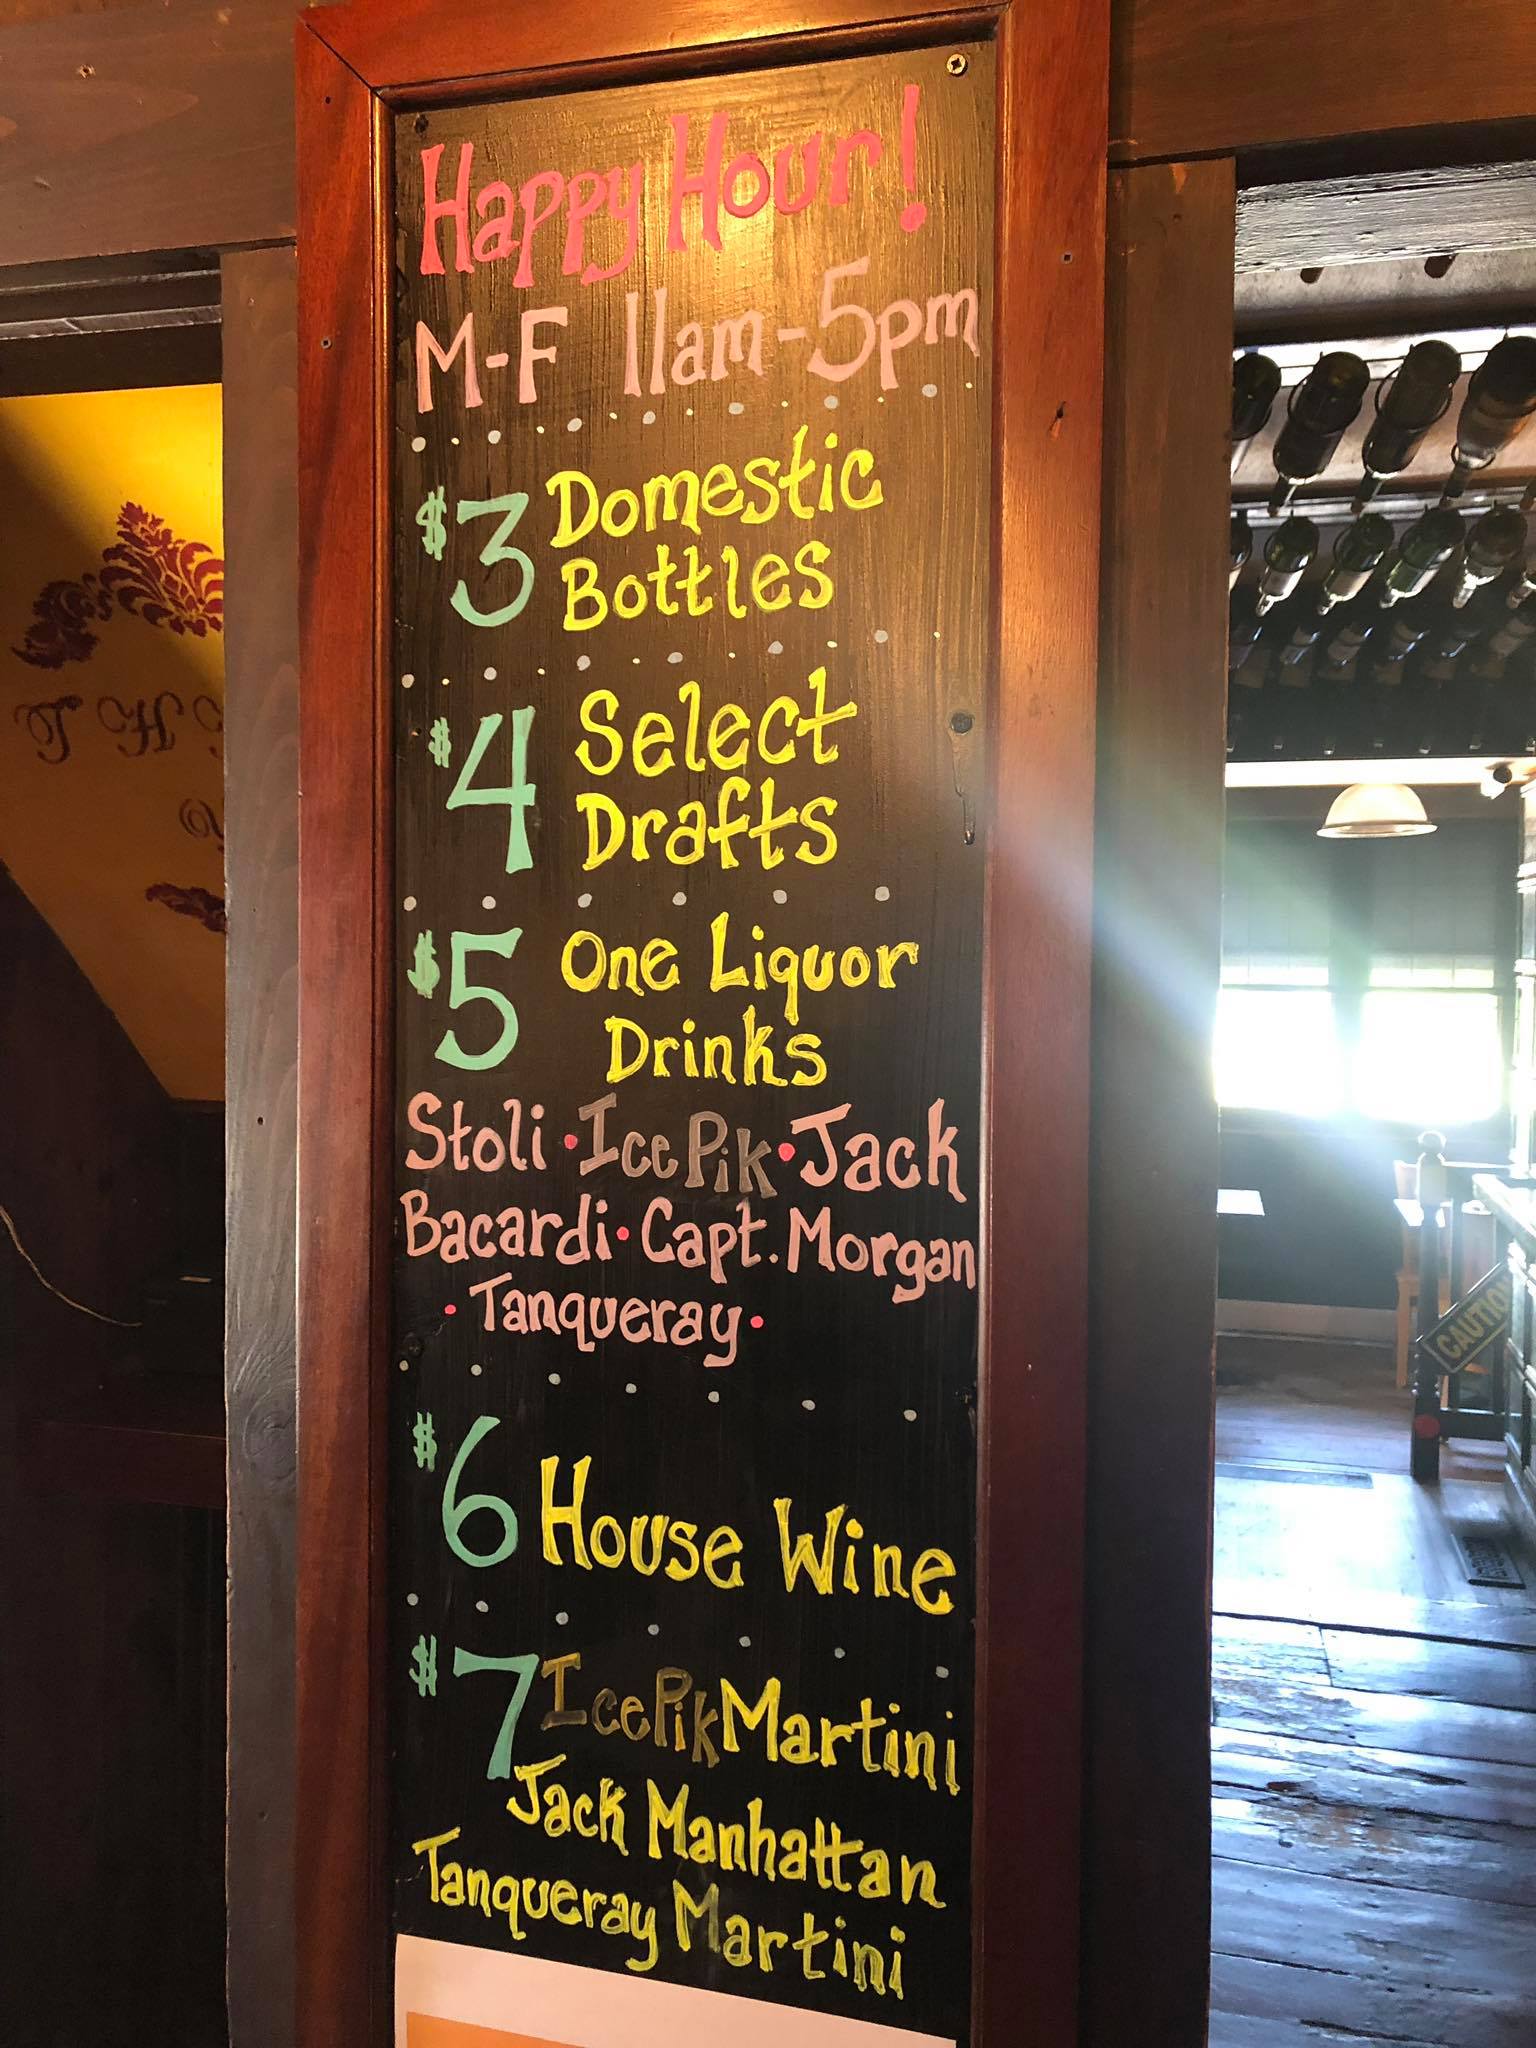 Happy Hour!
M-F 11am-5pm
$3 Domestic
Bottles
$4 Select
Drafts
$5 One Liquor
Drinks
Stoli · Ice Pik · Jack
Bacardi · Capt. Morgan
· Tanqueray ·
$6 House Wine
$7 Ice Pik Martini
Jack Manhattan
Tanqueray Martini
CAUTION